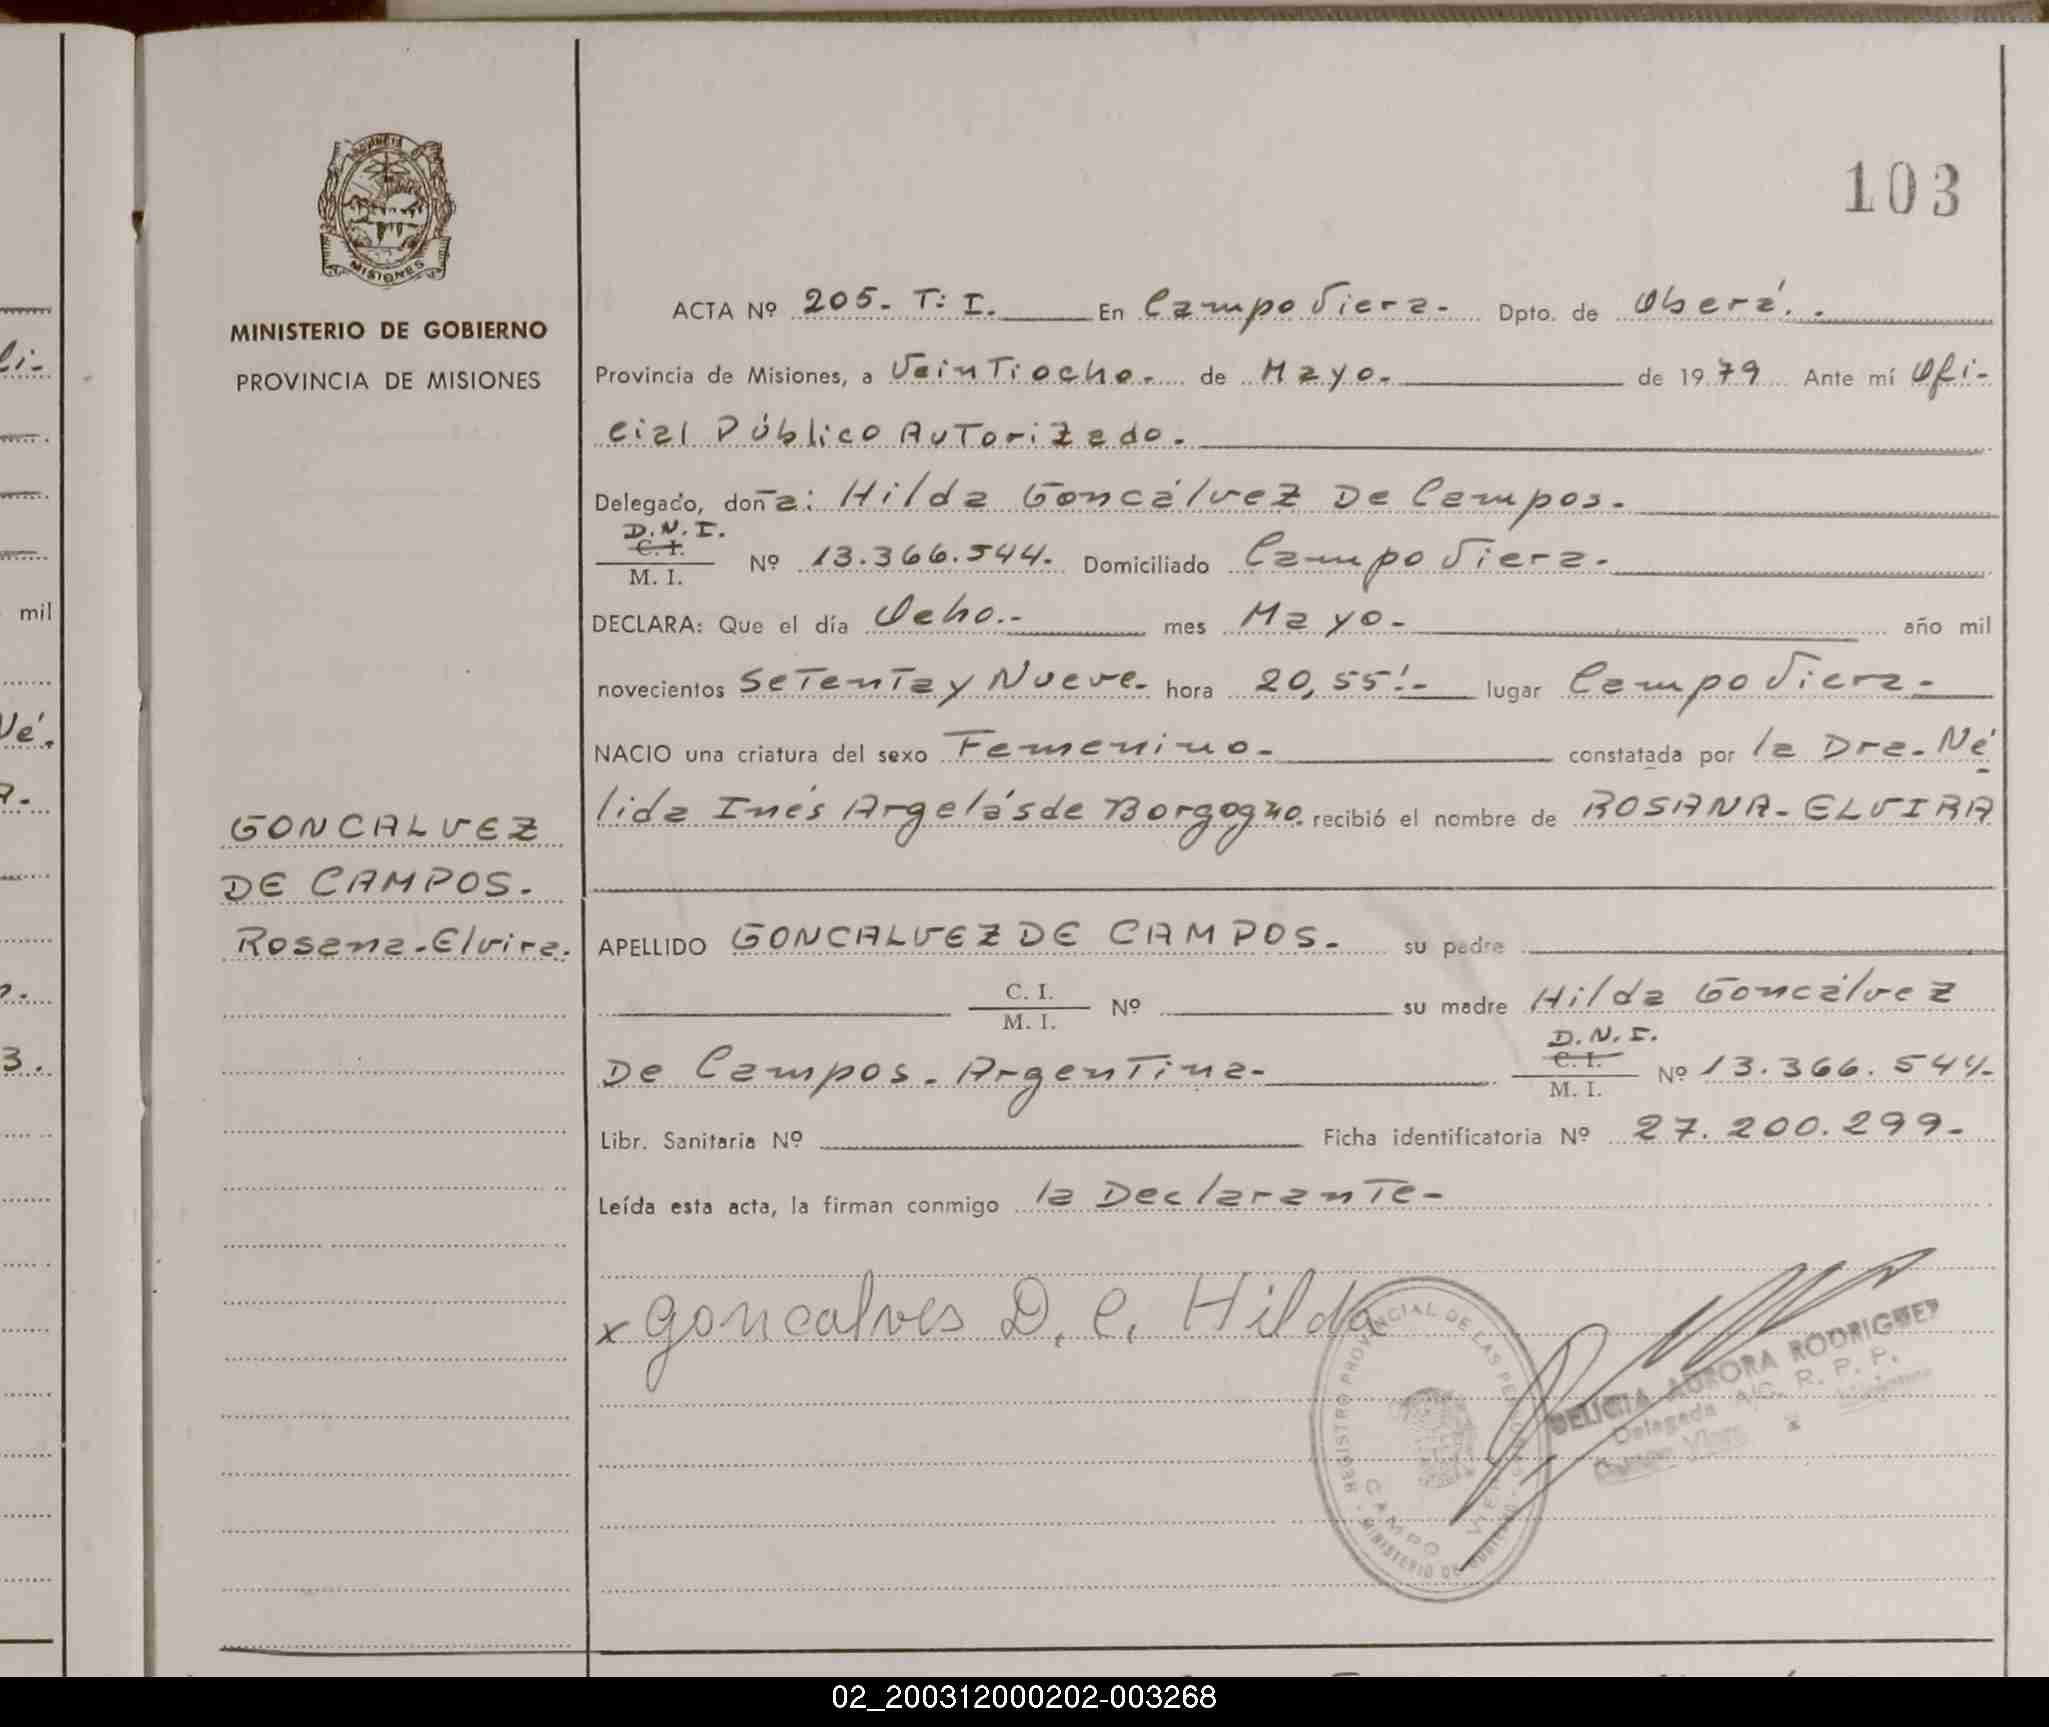 103
PROVINCIA
MISIONES
MINISTERIO DE GOBIERNO
PROVINCIA DE MISIONES
GONCALVEZ
DE CAMPOS.
Rosana-Elvira.
ACTA Nº 205- T: I. En Campo Viera- Dpto. de Oberá.
Provincia de Misiones, a VeinTiocho- de Mayo- de 1979 Ante mí Ofi-
cial Público AuTorizado-
Delegado, doña: Hilda Goncálvez De Campos-
D.N.I.
C. I.
M. I. Nº 13.366.544- Domiciliado Campo Viera-
DECLARA: Que el día Ocho.- mes Mayo- año mil
novecientos SeTenTa y Nueve- hora 20,55'- lugar Campo Viera-
NACIO una criatura del sexo Femenino- constatada por la Dra- Né
lida Inés Argelás de Borgogno. recibió el nombre de ROSANA-ELVIRA
APELLIDO GONCALVEZ DE CAMPOS- su padre
C. I.
M. I. Nº su madre Hilda Goncálvez
De Campos- ArgenTina-
D.N.I.
C. I.
M. I. Nº 13.366.544-
Libr. Sanitaria Nº Ficha identificatoria Nº 27.200.299-
Leída esta acta, la firman conmigo la DeclaranTe-
x Goncalves D. C. Hilda
REGISTRO PROVINCIAL DE LAS PERSONAS
CAMPO VIERA
MINISTERIO DE GOBIERNO
DELICIA AURORA RODRIGUEZ
Delegada A/C. R. P. P.
Campo Viera
mil
li-
Né-
3.
02_200312000202-003268